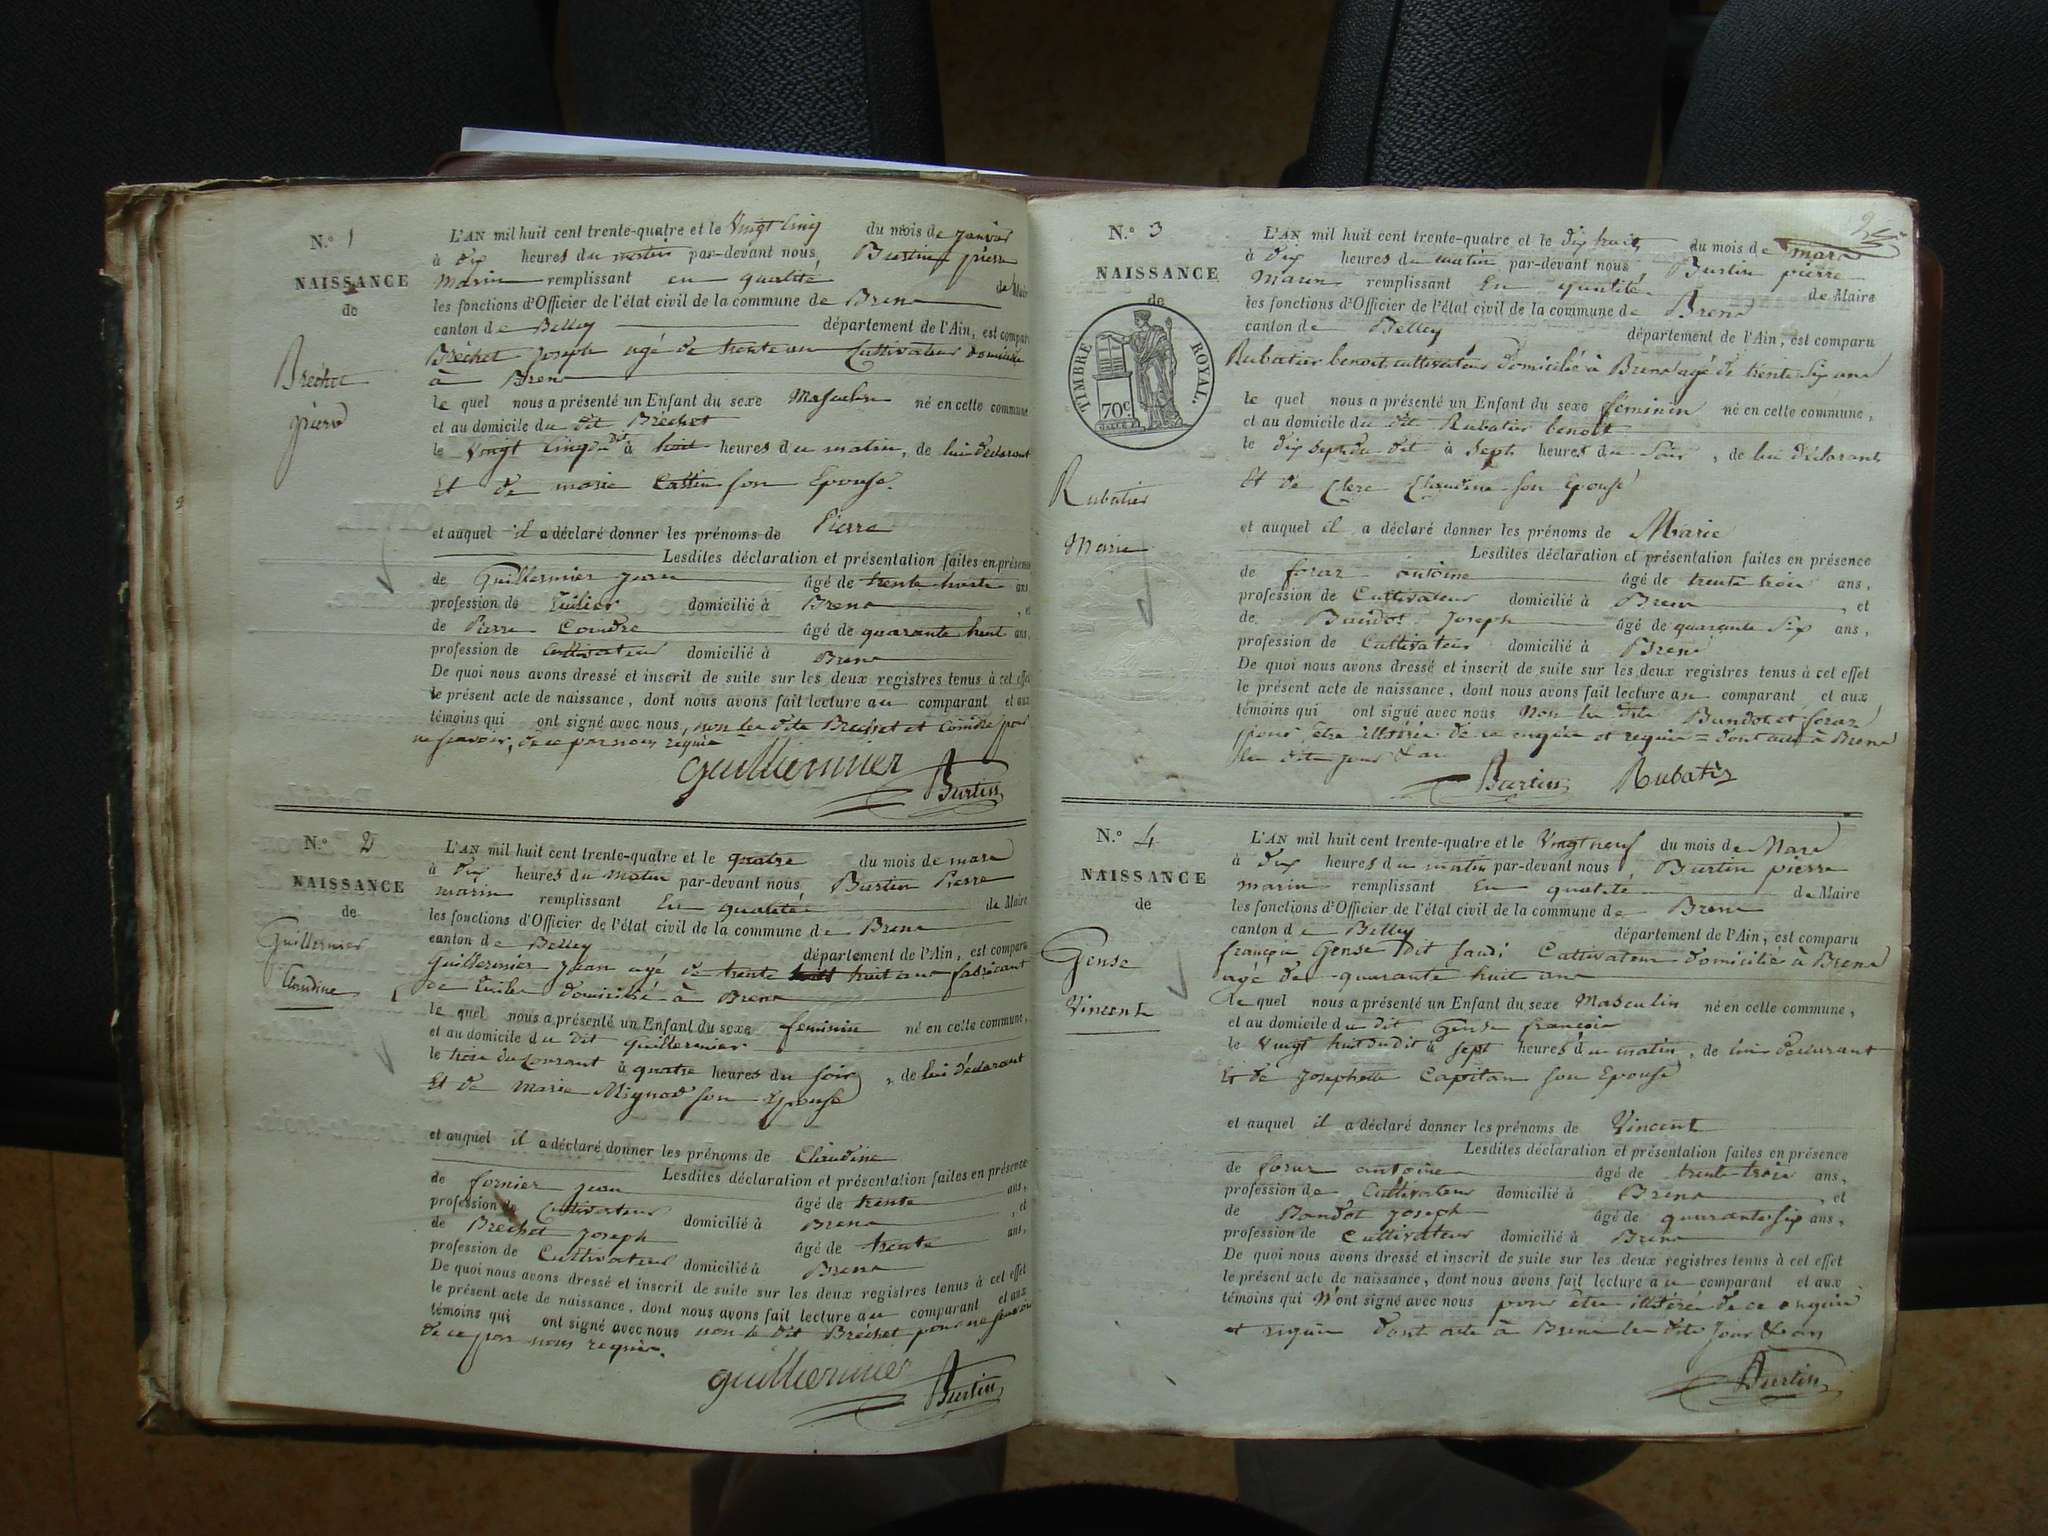 N.° 1
NAISSANCE
de
Brechet
pierre
L'AN mil huit cent trente-quatre et le Vingt Cinq du mois de janvier
à dix heures du matin par-devant nous, Burtin pierre
marin remplissant en qualité de Maire
les fonctions d'Officier de l'état civil de la commune de Brens
canton de Belley département de l'Ain, est comparu
Bréchet Joseph agé de trente ans Cultivateur domicilié
à Brens
le quel nous a présenté un Enfant du sexe Masculin né en cette commune
et au domicile du dit Bréchet
le Vingt Cinq du dit à huit heures du matin, de lui déclarant
Et de marie Cattin son Epouse.
et auquel il a déclaré donner les prénoms de Pierre
Lesdites déclaration et présentation faites en présence
de Guillermier jean âgé de trente huit ans
profession de Tuilier domicilié à Brens, et
de Pierre Coindre âgé de quarante huit ans,
profession de Cultivateur domicilié à Brens
De quoi nous avons dressé et inscrit de suite sur les deux registres tenus à cet effet
le présent acte de naissance, dont nous avons fait lecture au comparant et aux
témoins qui ont signé avec nous, non les dits Brechet et Coindre pour
ne savoir, de ce par nous requis
guillermier Burtin
N.° 2
NAISSANCE
de
Guillermier
Claudine
L'AN mil huit cent trente-quatre et le quatre du mois de mars
à dix heures du matin par-devant nous Burtin Pierre
marin remplissant En qualité de Maire
les fonctions d'Officier de l'état civil de la commune de Brens
canton de Belley département de l'Ain, est comparu
Guillermier jean agé de trente huit ans fabricant
de tuiles domicilié à Brens
le quel nous a présenté un Enfant du sexe feminin né en cette commune,
et au domicile du dit guillermier
le trois du Courant à quatre heures du soir, de lui déclarant
Et de Marie Mignod son Epouse
et auquel il a déclaré donner les prénoms de Claudine
Lesdites déclaration et présentation faites en présence
de fornier jean âgé de trente ans,
profession de Cultivateur domicilié à Brens, et
de Brechet joseph âgé de trente ans,
profession de Cultivateur domicilié à Brens
De quoi nous avons dressé et inscrit de suite sur les deux registres tenus à cet effet
le présent acte de naissance, dont nous avons fait lecture au comparant et aux
témoins qui ont signé avec nous non le dit Bréchet pour ne savoir
de ce par nous requis.
guillermier Burtin
N.° 3
NAISSANCE
de
TIMBRE ROYAL.
70c
Rubatier
Marie
L'AN mil huit cent trente-quatre et le dix huit du mois de mars
à dix heures du matin par-devant nous, Burtin pierre
Marin remplissant En qualité de Maire
les fonctions d'Officier de l'état civil de la commune de Brens
canton de Belley département de l'Ain, est comparu
Rubatier benoit cultivateur domicilié à Brens agé de trente six ans
le quel nous a présenté un Enfant du sexe féminin né en cette commune,
et au domicile du dit Rubatier benoit
le dix sept du dit à sept heures du soir, de lui déclarant
Et de Clerc Claudine son Epouse
et auquel il a déclaré donner les prénoms de Marie
Lesdites déclaration et présentation faites en présence
de foraz antoine âgé de trente trois ans,
profession de Cultivateur domicilié à Brens, et
de Joseph âgé de quarante six ans,
profession de Cultivateur domicilié à Brens
De quoi nous avons dressé et inscrit de suite sur les deux registres tenus à cet effet
le présent acte de naissance, dont nous avons fait lecture au comparant et aux
témoins qui ont signé avec nous Non les dits et foraz
pour être illitérés de ce enquis et requis = dont acte à Brens
les dits jour & an
Burtin Rubatier
N.° 4
NAISSANCE
de
Gense
Vincent
L'AN mil huit cent trente-quatre et le Vingt neuf du mois de Mars
à dix heures du matin par-devant nous Burtin pierre
marin remplissant En qualité de Maire
les fonctions d'Officier de l'état civil de la commune de Brens
canton de Belley département de l'Ain, est comparu
françois Gense dit Cultivateur domicilié à Brens
agé de quarante huit ans
le quel nous a présenté un Enfant du sexe Masculin né en cette commune,
et au domicile du dit Gense françois
le Vingt huit du dit à sept heures du matin, de lui déclarant
Et de Josephette Capitan son Epouse
et auquel il a déclaré donner les prénoms de Vincent
Lesdites déclaration et présentation faites en présence
de foraz antoine âgé de trente trois ans,
profession de Cultivateur domicilié à Brens, et
de Bondot Joseph âgé de quarante six ans,
profession de Cultivateur domicilié à Brens
De quoi nous avons dressé et inscrit de suite sur les deux registres tenus à cet effet
le présent acte de naissance, dont nous avons fait lecture au comparant et aux
témoins qui N'ont signé avec nous pour être illitérés de ce enquis
et requis dont acte à Brens les dits Jour & an
Burtin